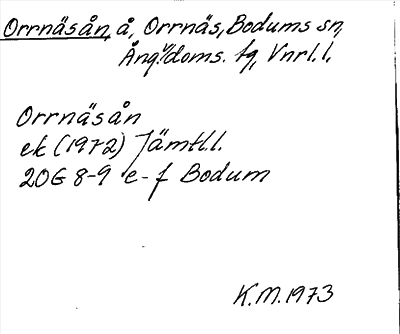 Orrnäsån, å, Orrnäs, Bodums sn,
Ång:doms. tg, Vnrl.l.
Orrnäsån
ek (1972) Jämtl.l.
20G 8-9 e-f Bodum
K.M. 1973